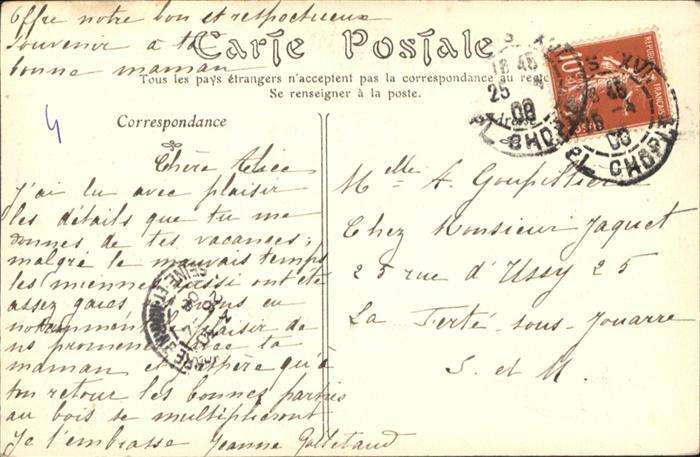 Offre notre bon et respectueux
souvenir à ta
bonne maman
Carte Postale
Tous les pays étrangers n'acceptent pas la correspondance au recto
Se renseigner à la poste.
4
Correspondance
Chère Alice
J'ai lu avec plaisir
les détails que tu me
donnes de tes vacances;
malgré le mauvais temps
les miennes aussi ont été
assez gaies
notamment plaisir de
ns promener avec ta
maman et espère qu'à
ton retour les bonnes parties
au bois se multiplieront
Je t'embrasse Jeanne
Adresse
Melle A. Goupillière
Chez Monsieur Jaquet
25 rue d'Ussy 25
La Ferté-sous-Jouarre
S. et M.
10
PL. CHOPIN
25
08
PL. CHOPIN
08
SEINE-ET-MARNE